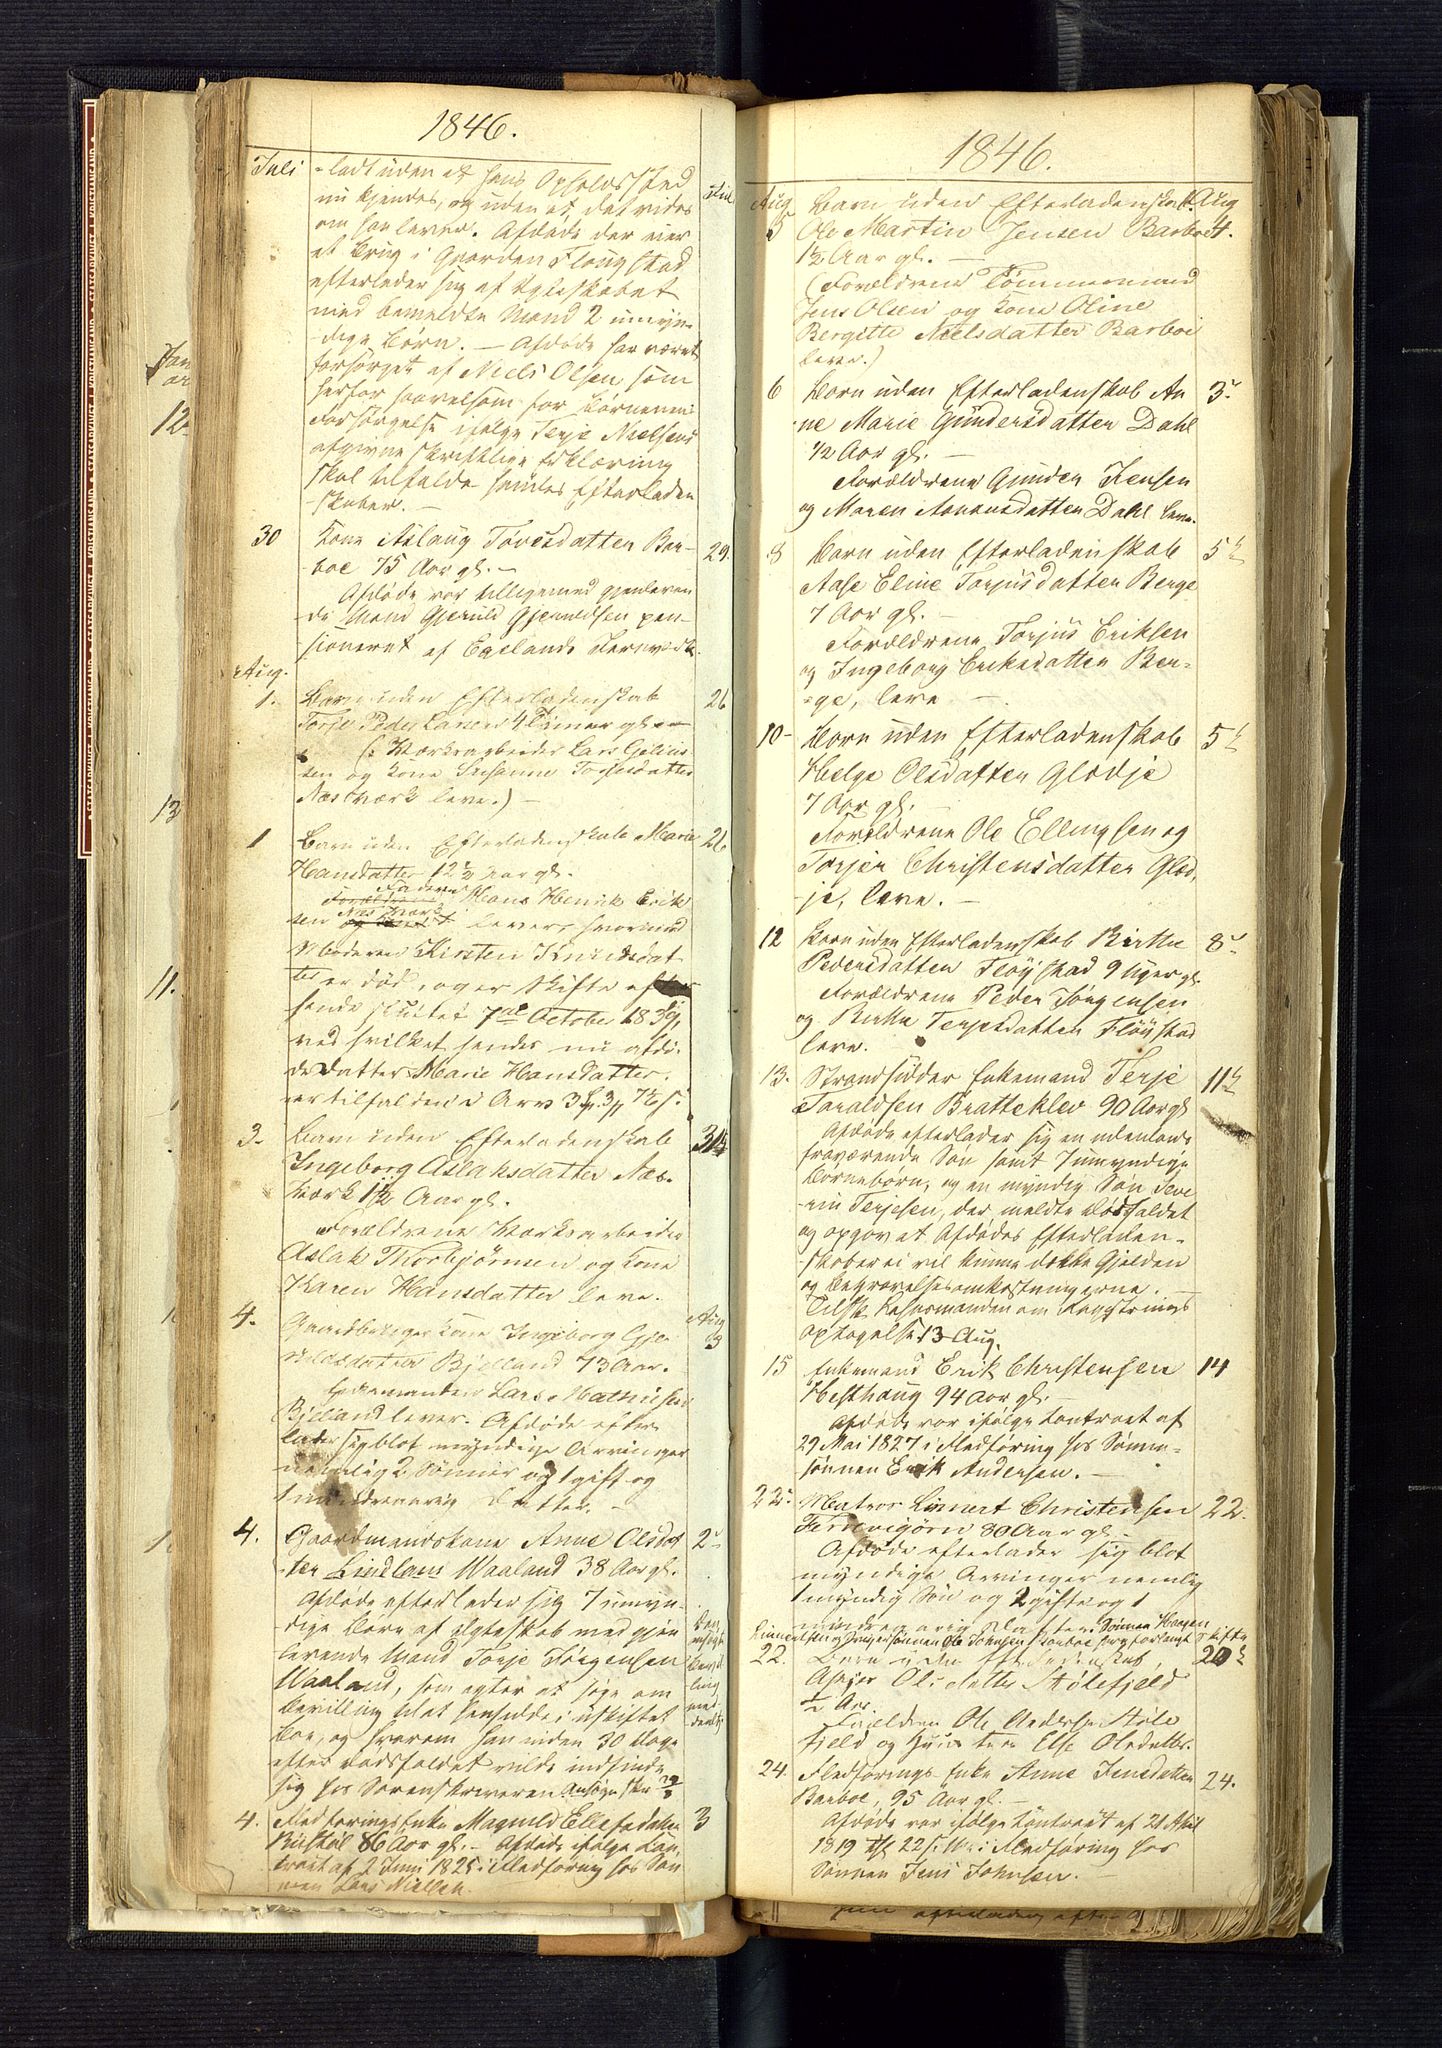 1846.
Juli
ladt uden at hans Opholdssted
nu kjendes, og uden at det vides
om han lever. Afdøde der eier
et Brug i Gaarden Flougstad
efterlader sig af Ægteskabet
med bemeldte Mand 2 umyn-
dige Børn. — Afdøde har været
forsørget af Niels Olsen, som
herfor saavelsom for Børnenes
Forsørgelse ifølge Terje Nielsens
afgivne skriftlige Erklæring
skal tilfalde hendes Efterladen
skaber. —
30 Kone Aslaug Tovesdatter Bar- 29.
boe 75 Aar gl. —
Afdøde var tilligemed gjenleven
de Mand Gjeruld Gjeruldsen pen-
sioneret af Egelands Jernværk.
Aug.
1. Barn uden Efterladenskab 26
Torje Peder Larsen 4 Timer gl.
(: Værksarbeider Lars
sen og Kone Susanne Torjesdatter
Næsværk leve.) —
1 Barn uden Efterladenskab Marie 26
Hansdatter 12 1/2 Aar gl.
Faderen Hans Henrik Erik
sen Næs Værk lever, hvorimod
Moderen Kirsten Knudsdat
ter er død, og er Skifte efter
hende sluttet 7de October 1839,
ved hvilket hendes nu afdø-
de Datter Marie Hansdatter
er tilfalden i Arv
3. Barn uden Efterladenskab 31
Ingeborg Aslaksdatter Næs-
værk 1 1/2 Aar gl.
Forældrene Værksarbeider
Aslak Thorbjørnsen og Kone
Karen Hansdatter leve.
4. Gaardbruger Kone Ingeborg Gje Aug
ruldsdatter Bjelland 73 Aar. 3
Enkemanden Lars Mathisen
Bjelland lever. Afdøde efter
lader sig blot myndige Arvinger
nemlig 2 Sønner og 1 gift og
1 mindreaarig Datter. —
4. Gaardmandskone Anne Olsdat 2
ter Lindland Waaland 38 Aar gl.
Afdøde efterlader sig 7 umyn-
dige Børn af Ægteskab med gjen
levende Mand Torje Jørgensen
Waaland, som agter at søge om
Bevilling til at hensidde i uskiftet
Boe, og hvorom han inden 30 Dage
efter Dødsfaldet vilde indfinde
sig hos Sorenskriveren
4. Fledførings Enke Magnild Ellefsdatter 3
86 Aar gl. — Afdøde ifølge Con-
tract af 2 Juni 1825 i Fledføring hos Søn
nen Lars Nielsen.
1846.
Aug Barn uden Efterladenskab Aug
5 Ole Martin Jensen Barboe 4.
1 1/2 Aar gl. —
(Forældrene Tømmermand
Jens Olsen og Kone Oline
Bergitte Nielsdatter Barboe
lever.)
6 Barn uden Efterladenskab An 3
ne Marie Gundersdatter Dahl
1/2 Aar gl. —
Forældrene Gunder Jensen
og Maren Aanonsdatter Dahl leve.
8 Barn uden Efterladenskab 5
Aase Eline Torjusdatter Berge
7 Aar gl. —
Forældrene Torjus Eriksen
og Ingeborg Eriksdatter Ber-
ge, leve —
10 Barn uden Efterladenskab 5
Helge Olsdatter Glødje
7 Aar gl. —
Forældrene Ole Ellingsen og
Torjer Christensdatter Glød-
je, leve. —
12 Barn uden Efterladenskab Birthe 8
Pedersdatter Fløystad 9 Uger gl.
Forældrene Peder Jørgensen
og Birthe Terjesdatter Fløystad
leve.
13. Strandsidder Enkemand Terje 11
Taraldsen Bratteklev 90 Aar gl
Afdøde efterlader sig en udenlands
fraværende Søn samt 7 umyndige
Børnebørn, og en myndig Søn Seve
rin Terjesen, der meldte Dødsfaldet
og opgav at Afdødes Efterladen-
skaber ei vil kunne dække Gjelden
og Begravelsesomkostningerne. —
Tilsk. Lehnsmanden om Registrerings
optagelse 13 Aug.
15 Enkemand Erik Christensen 14
Hesthaug 94 Aar gl. —
Afdøde var ifølge Contract af
29 Mai 1827 i Fledføring hos Sønne-
sønnen Erik Andersen. —
22. Matros Linnert Christensen 22.
80 Aar gl. —
Afdøde efterlader sig blot
myndige Arvinger nemlig
1 myndig Søn og 2 gifte og 1
mindreaarig Datter. Sønnen
22. Barn uden Efterladenskab, 20
Olsdatter Stølefjeld
1/2 Aar
Forældrene Ole Andersen Støle
fjeld og Hustru Else Olsdatter.
24. Fledførings Enke Anne Jensdatter 24.
Barboe, 95 Aar gl. —
Afdøde var ifølge Contract af 21 April
1819 i Fledføring hos
Sønnen Jens Johnsen. —